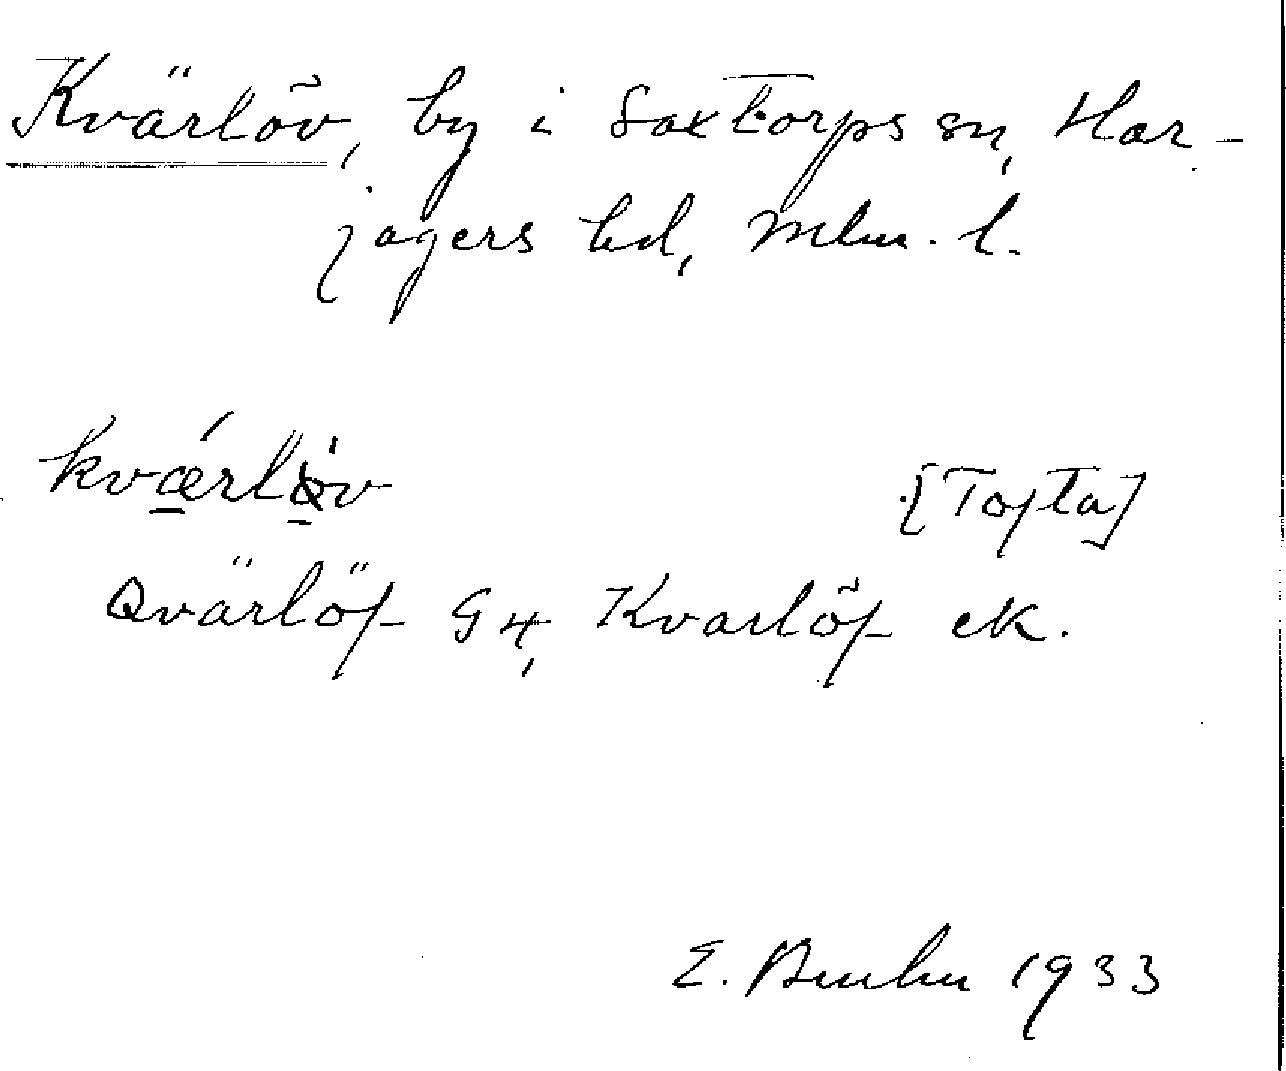 Kvärlöv, by i Saxtorps sn, Har-
jagers hd, Mlm. l.
kværløv [Tofta]
Qvärlöf G4, Kvarlöf ek.
E. Bruhn 1933